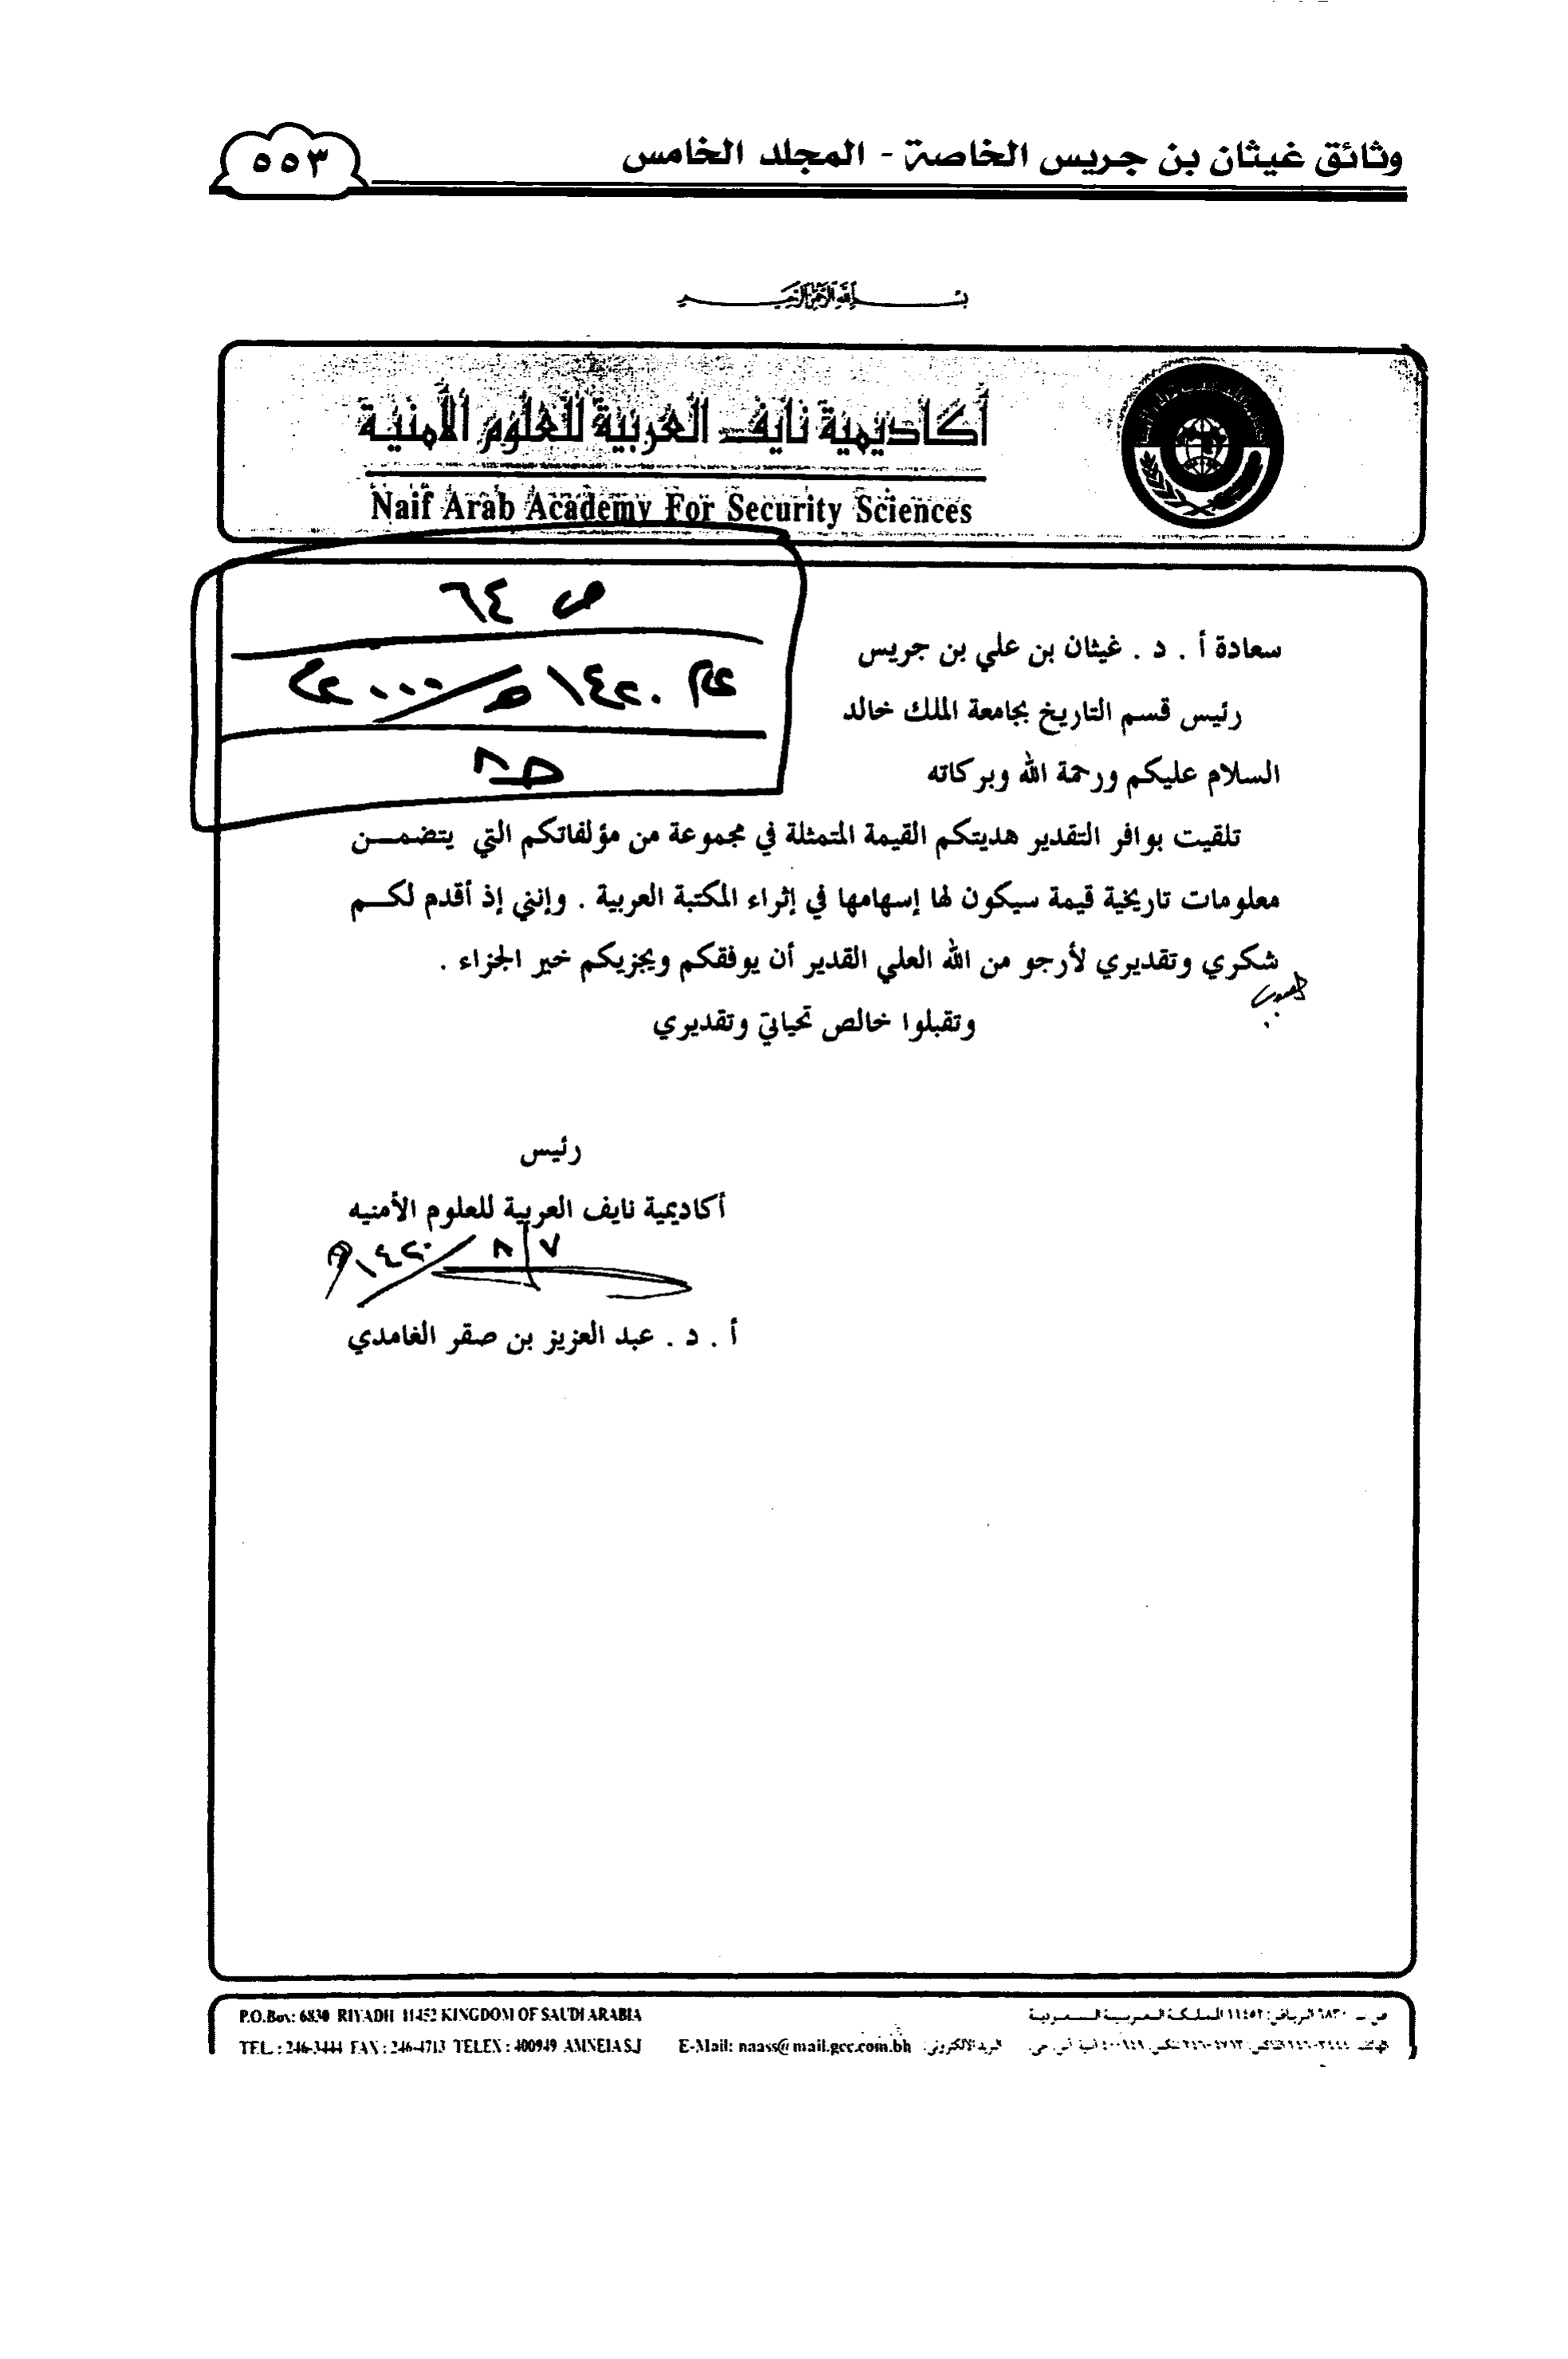 وثائق غيثان بن جريس الخاصة - المجلد الخامس
٥٥٣
بسم الله الرحمن الرحيم
أكاديمية نايف العربية للعلوم الأمنية
Naif Arab Academy For Security Sciences
ص ٦٤
عام ١٤٢٠هـ/٢٠٠٠م
سعادة أ . د . غيثان بن علي بن جريس
رئيس قسم التاريخ بجامعة الملك خالد
السلام عليكم ورحمة الله وبركاته
تلقيت بوافر التقدير هديتكم القيمة المتمثلة في مجموعة من مؤلفاتكم التي يتضمـــن
معلومات تاريخية قيمة سيكون لها إسهامها في إثراء المكتبة العربية . وإنني إذ أقدم لكـــم
شكري وتقديري لأرجو من الله العلي القدير أن يوفقكم ويجزيكم خير الجزاء .
وتقبلوا خالص تحياتي وتقديري
رئيس
أكاديمية نايف العربية للعلوم الأمنيه
٧/٨/١٤٢٠هـ
أ . د . عبد العزيز بن صقر الغامدي
P.O.Box: 6830 RIYADH 11452 KINGDOM OF SAUDI ARABIA
ص.ب ٦٨٣٠ الرياض: ١١٤٥٢ المملكة العربية السعودية
TEL. : 246-3444 FAX : 246-4713 TELEX : 400949 AMNEIA SJ
E-Mail: naass@mail.gcc.com.bh البريد الالكتروني: